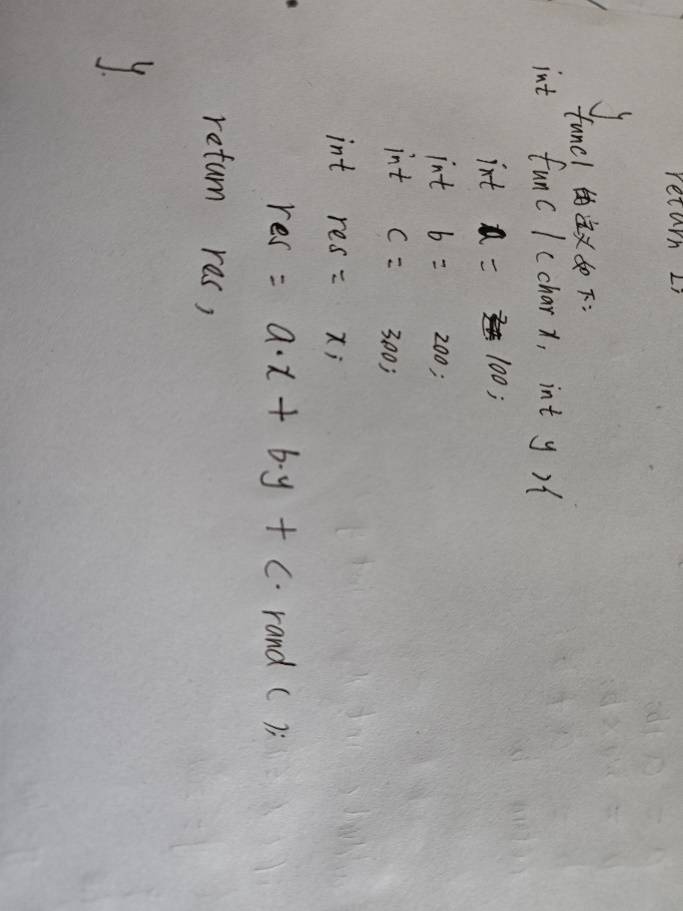 return 1;
}
func1 的定义如下:
int func1(char x, int y){
int a = 100;
int b = 200;
int c = 300;
int res = x;
res = a·x + b·y + c·rand();
return res;
}